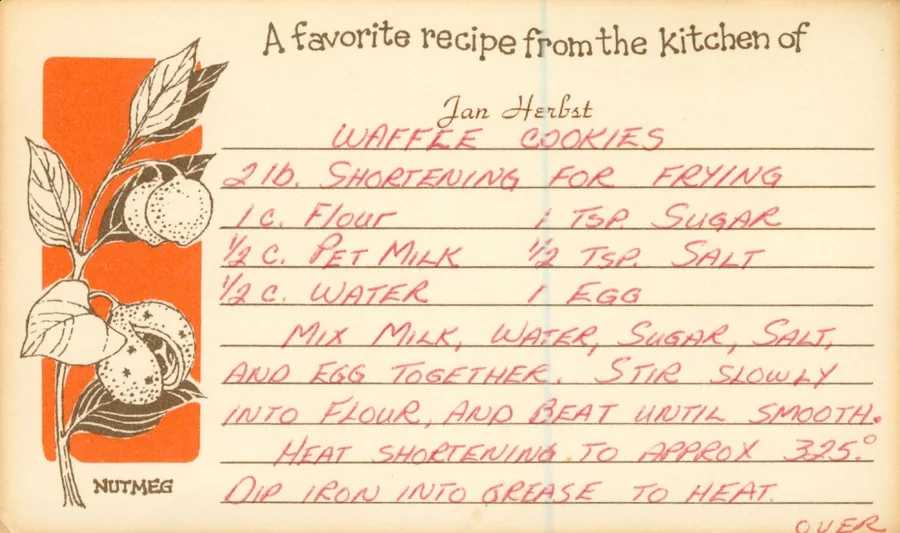 A favorite recipe from the kitchen of
Jan Herbst
WAFFEE COOKIES
2 lb. SHORTENING FOR FRYING
1 c. Flour 1 TSP. SUGAR
1/2 c. PET MILK 1/2 TSP. SALT
1/2 c. WATER 1 EGG
MIX MILK, WATER, SUGAR, SALT,
AND EGG TOGETHER. STIR SLOWLY
INTO FLOUR, AND BEAT UNTIL SMOOTH.
HEAT SHORTENING TO APPROX 325.°
DIP IRON INTO GREASE TO HEAT.
NUTMEG
OVER